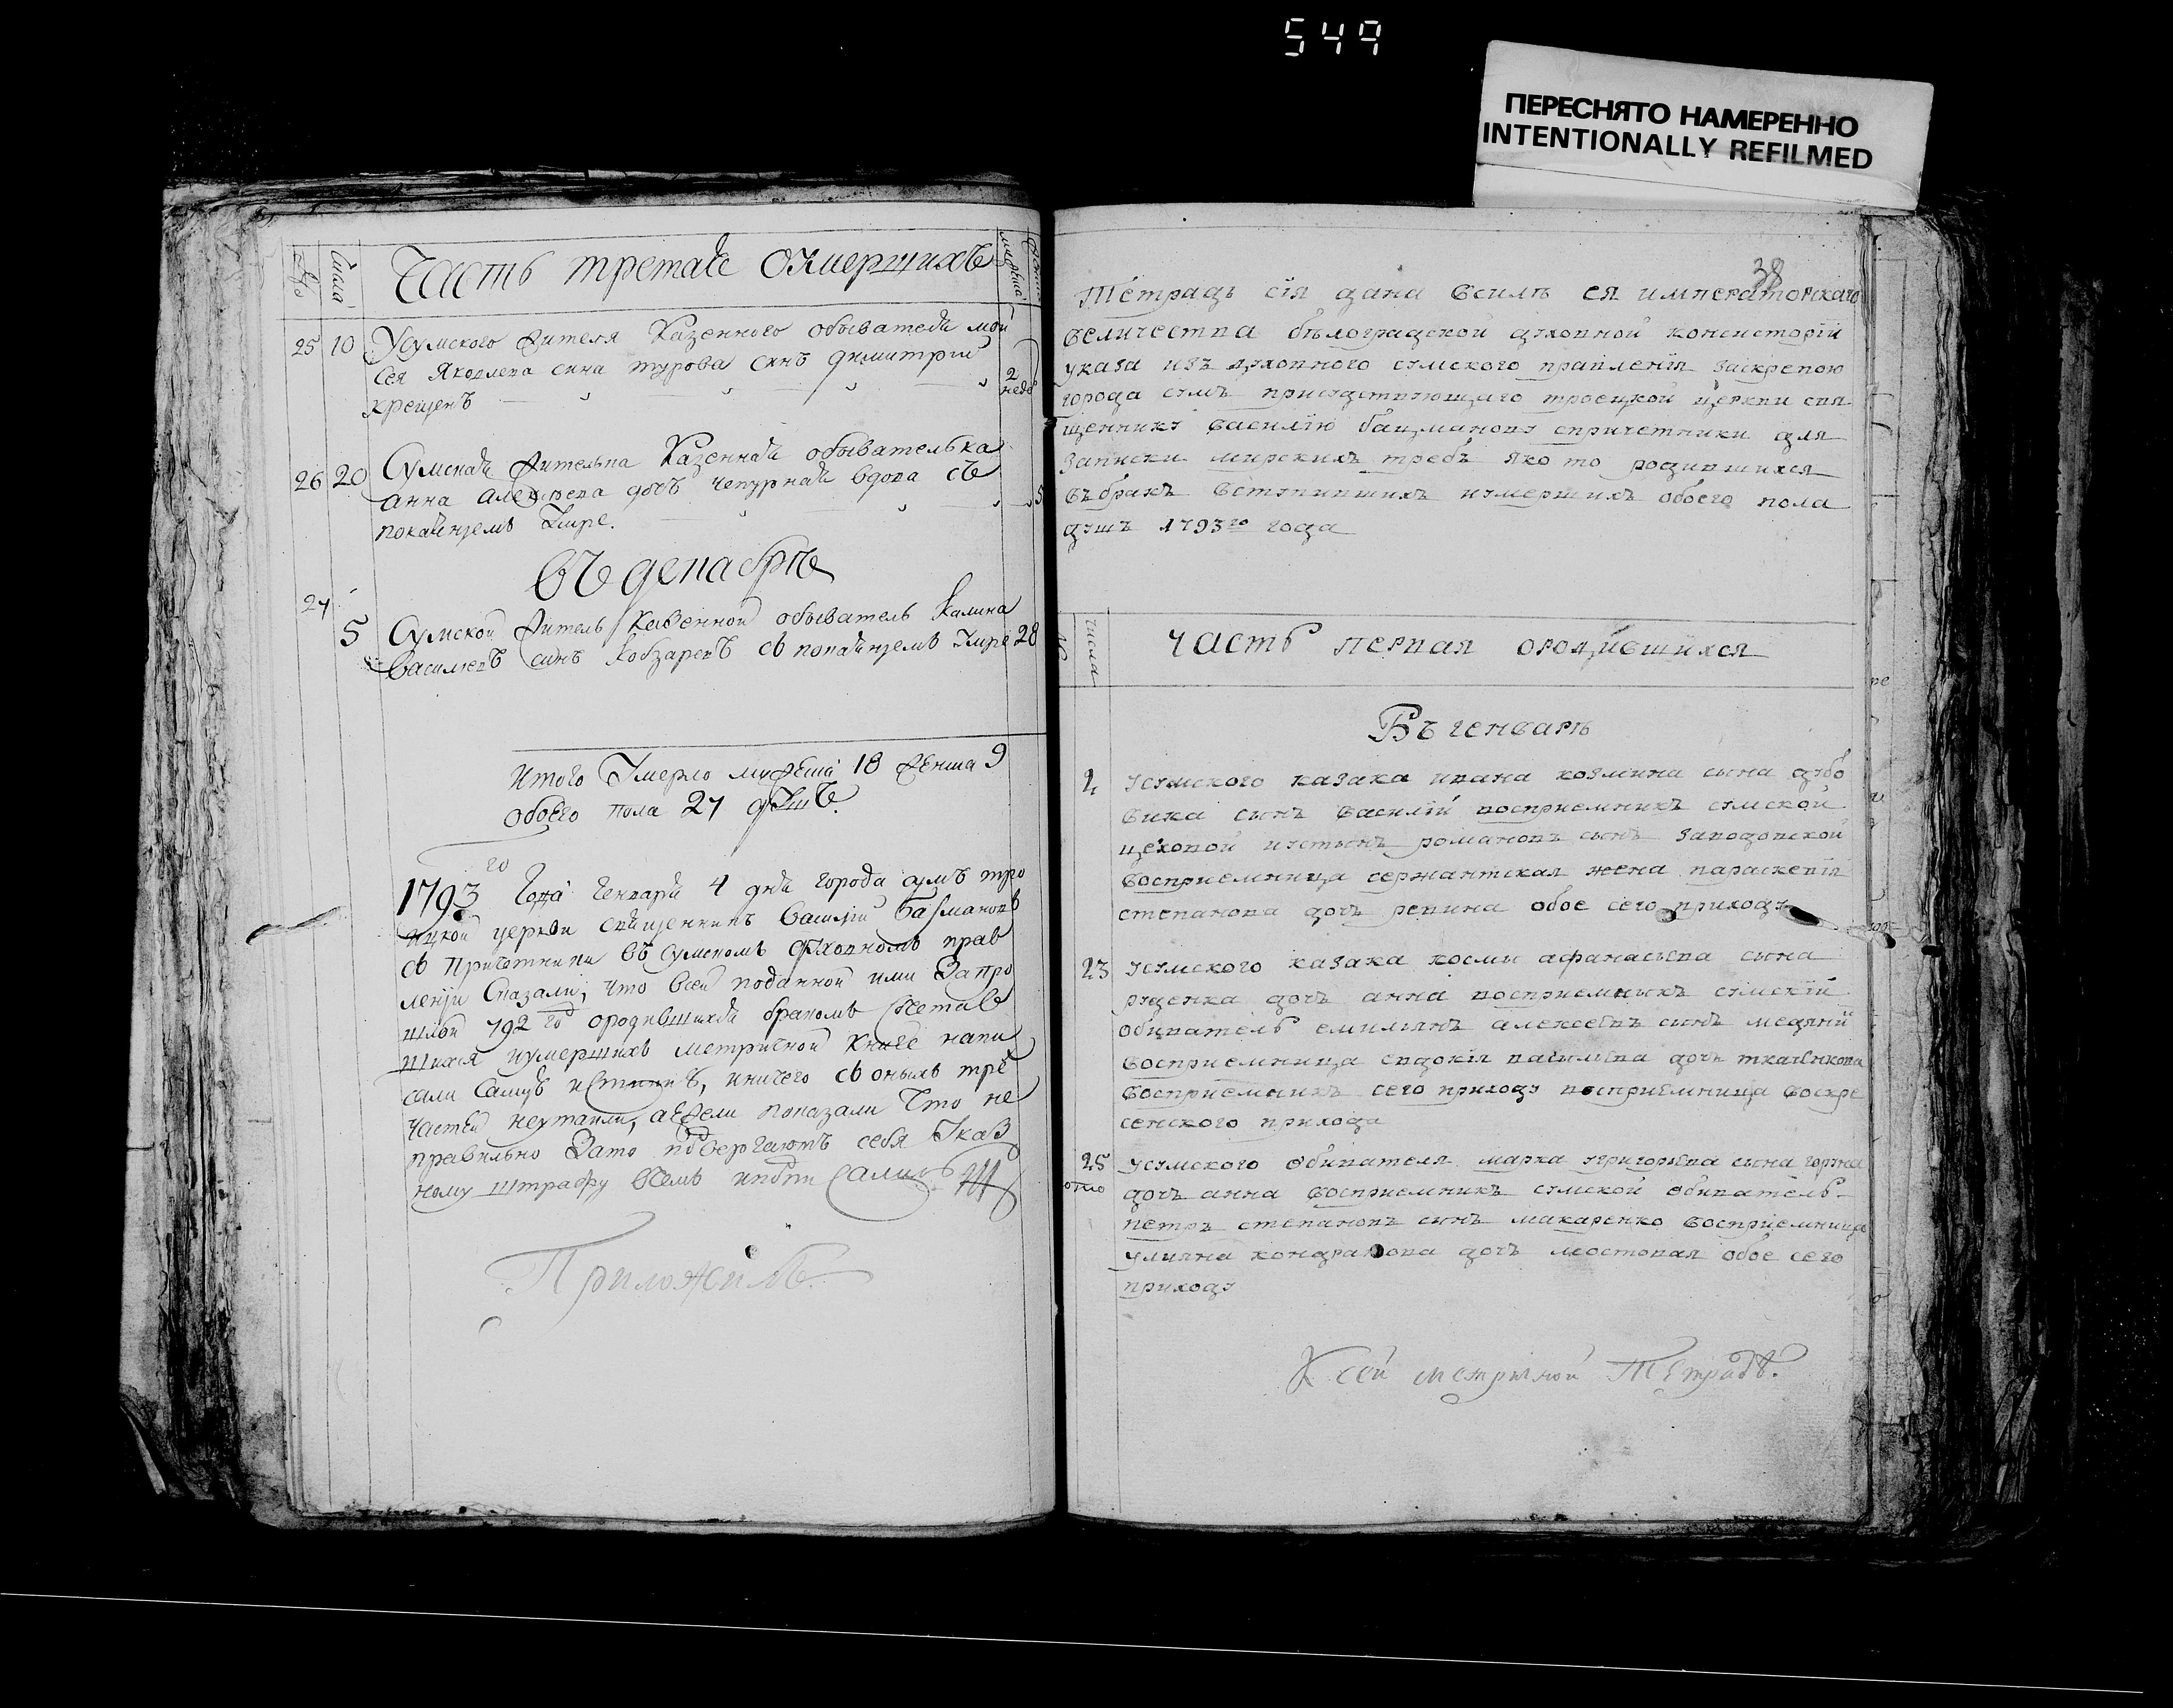 549
ПЕРЕСНЯТО НАМЕРЕННО
INTENTIONALLY REFILMED
Числа
Часть третае оумершихъ
25 10 Усумского жителя Казенного обывателя мой
сея Яковлева сина турова синъ димитрий
крещенъ 2 неде
26 20 Сумская жителька Казенная обывателька
анна дочъ чепурная вдова съ
покаянјемъ Умре. 5
Въ декабрѣ
27
5 Сумской житель Казенной обыватель Калина
Василевъ синъ Кобзаревъ св покаянјемъ Умре 28
Итого Умерло мужеска 18 женска 9
обоего пола 27 душъ.
1793 го Года Генваря 4 дня города сумъ тро
ицкой церкви священникъ Василій Бацмановъ
св Причетники въ Сумскомъ духовномъ прав
ленји Сказали, что всей поданной ими За про
шлой 792 го ородившихся бракомъ Сочетав
шихся иумершихъ метричной Книге напи
сали Самую истинну, иничего св оныхъ трех
Частей неутаили, аежели показали Что не
правильно Зато подвергаютъ себя Указ
ному Штрафу
Приложилъ.
38
Тетрадь сія дана всилѣ ея императорскаго
величества бѣлоградской духовной консисторіи
указа изъ духовного сумского правленія Заскрепою
города сумъ присудствующаго троецкой церкви свя
щеннику василію бацманову спричетники для
Записки мирскихъ требъ яко то родившихся
въбракъ вступившихъ иумершихъ обоего пола
душъ 1793го года
числа
Часть первая ородившихся
Въ генварѣ
2 Усумского казака ивана козмина сына дубо
вика сынъ василій восприемникъ сумской
цеховой иустинъ романовъ сынъ Заводовской
восприемница сержантская жена параскевія
степанова дочъ репина обое сего приходу
23 Усумского казака космы афанасьева сына
руденка дочъ анна восприемникъ сумскій
обиватель емилиянъ алексеевъ сынъ медяній
восприемница евдокія васильева дочъ ткаченкова
восприемникъ сего приходу восприемница воскре
сенского прихода
25 Усумского обивателя марка григорьева сына
дочъ анна восприемникъ сумской обиватель
петръ степановъ сынъ макаренко восприемница
улияна кондратова дочъ мостовая обое сего
приходу
К сей метричной Тетради.